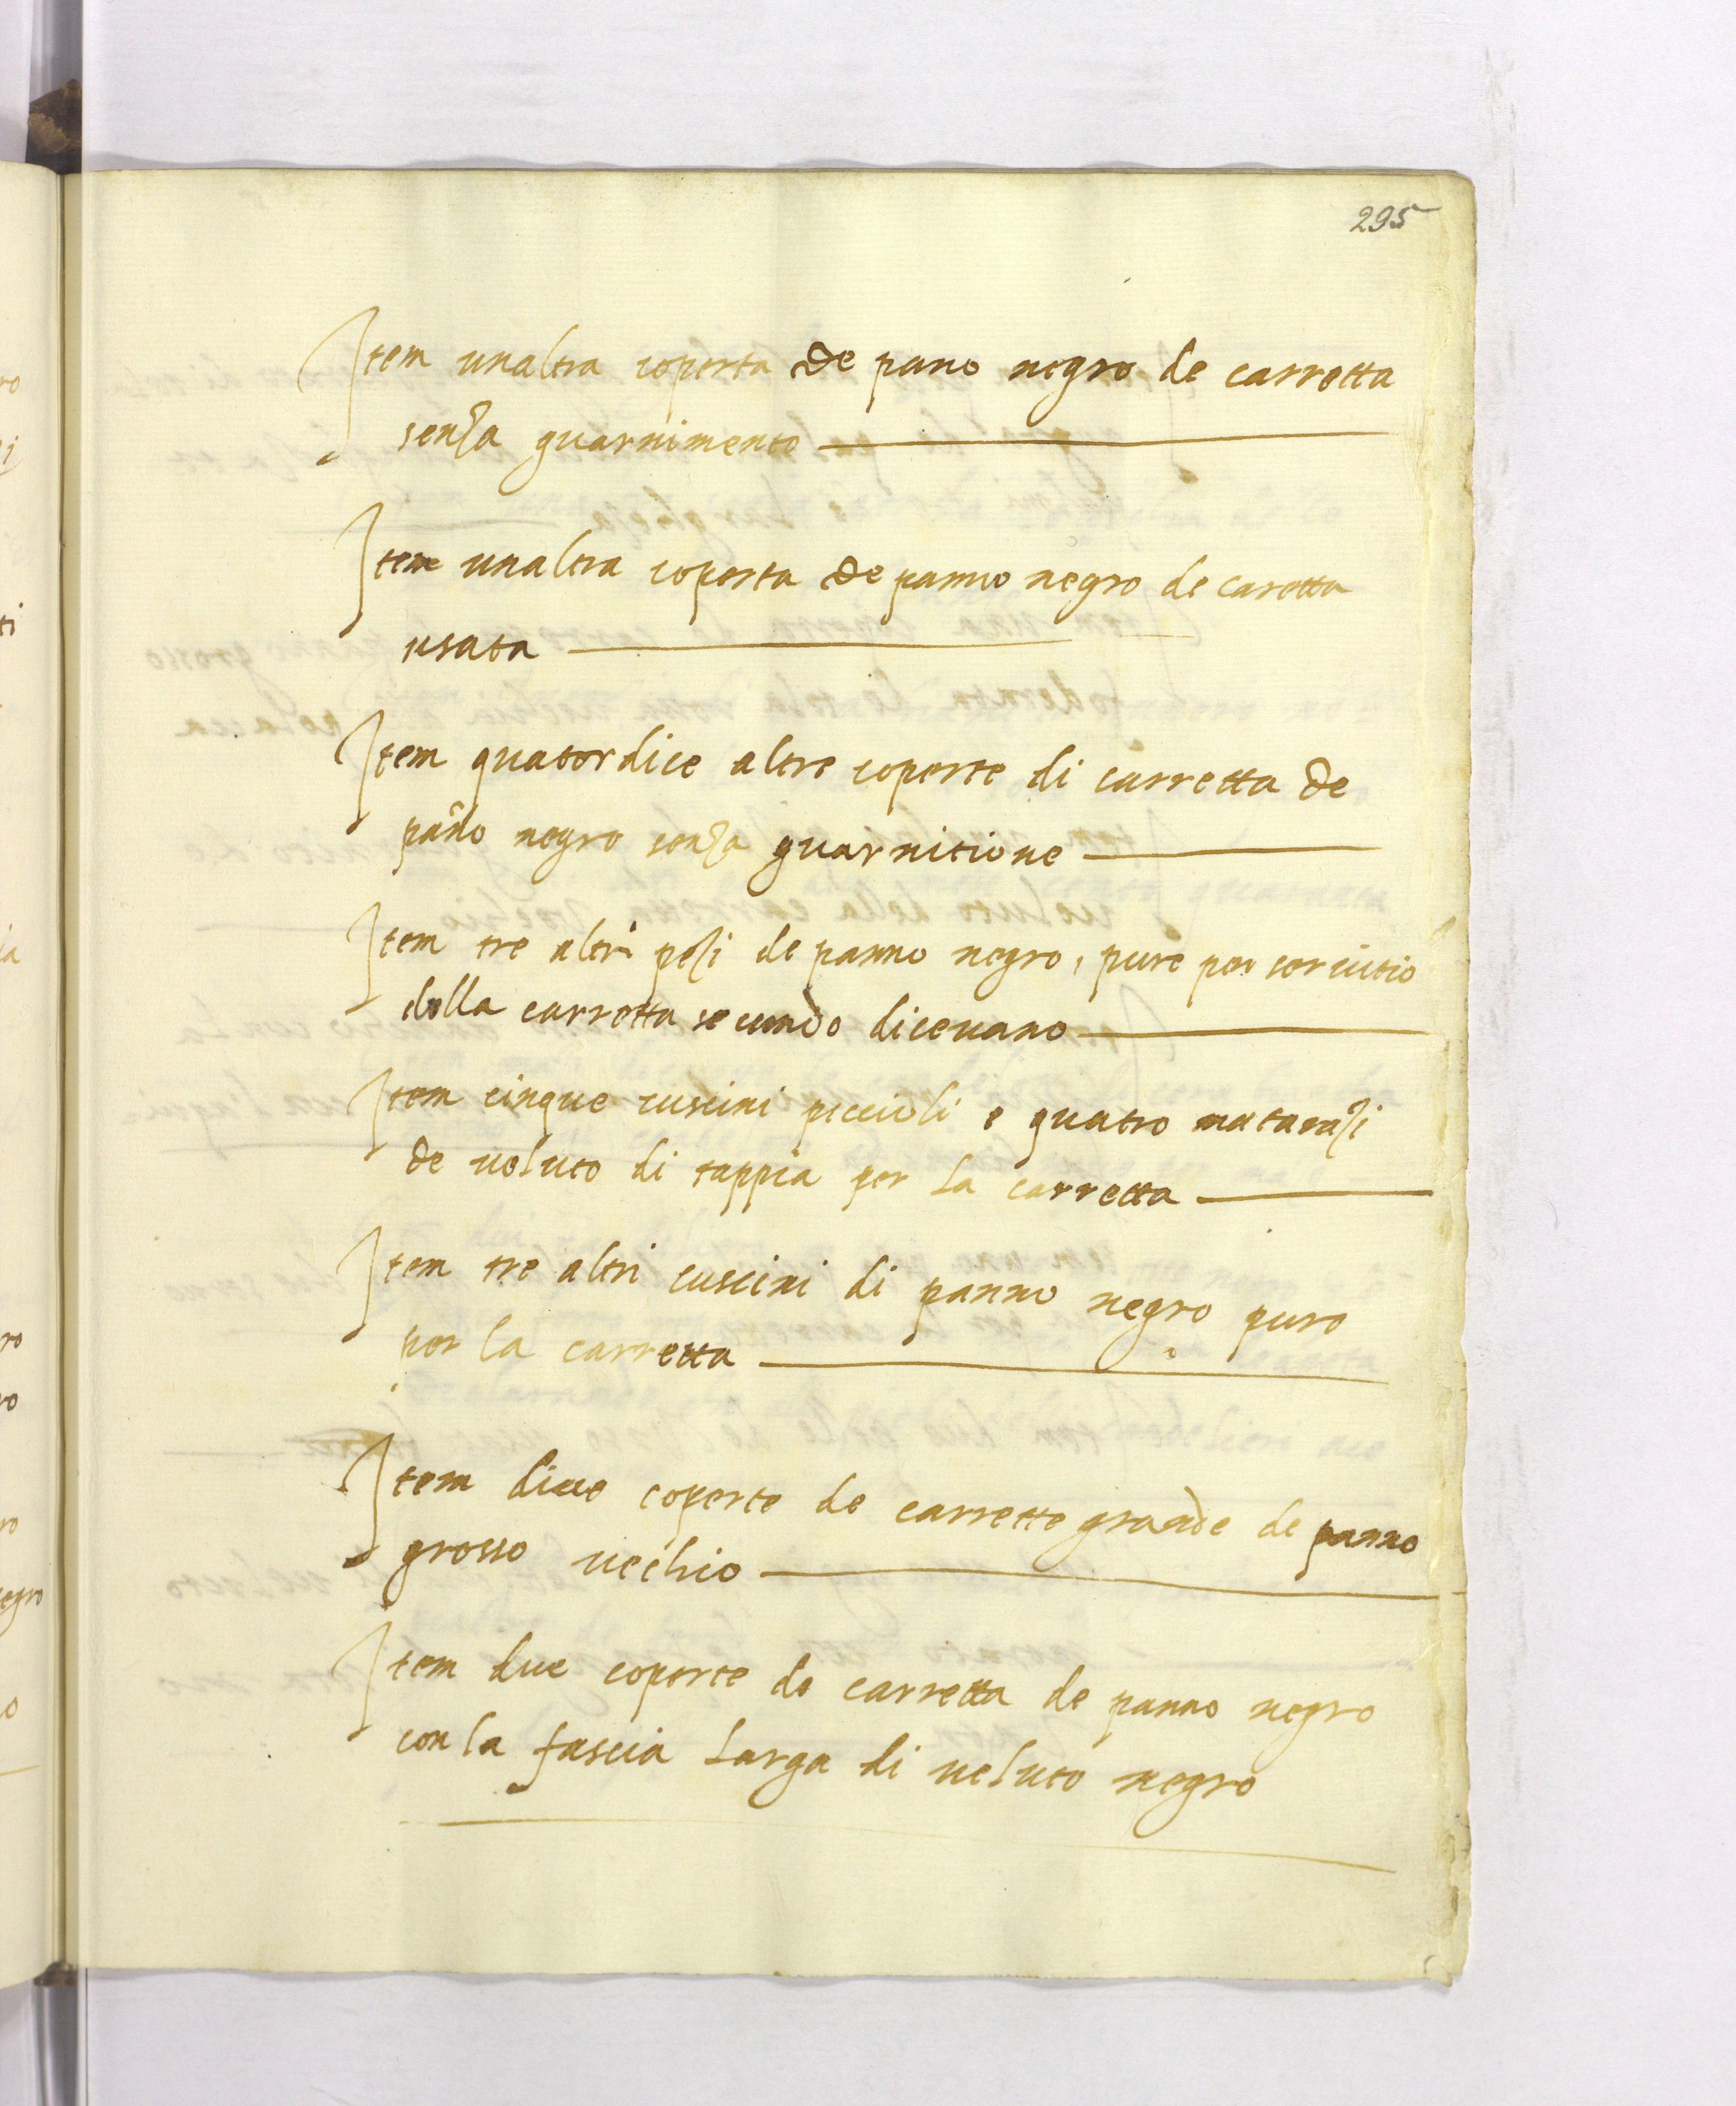 295
Item unaltra coperta de pano negro de carretta
senza guarnimento
Item unaltra coperta de panno negro de caretta
usata
Item quatordice altre coperte di carretta de
pãno negro senza guarnitione
Item tre altri pezi de panno negro, pure per servitio
della carretta secundo dicevano
Item cinque cuscini piccioli e quatro matarazi
de veluto di tappia per la carretta
Item tre altri cuscini di panno negro pure
per la carretta
Item diece coperte de carrette grande de panno
grosso vechio
Item due coperte de carretta de panno negro
con la fascia larga di veluto negro